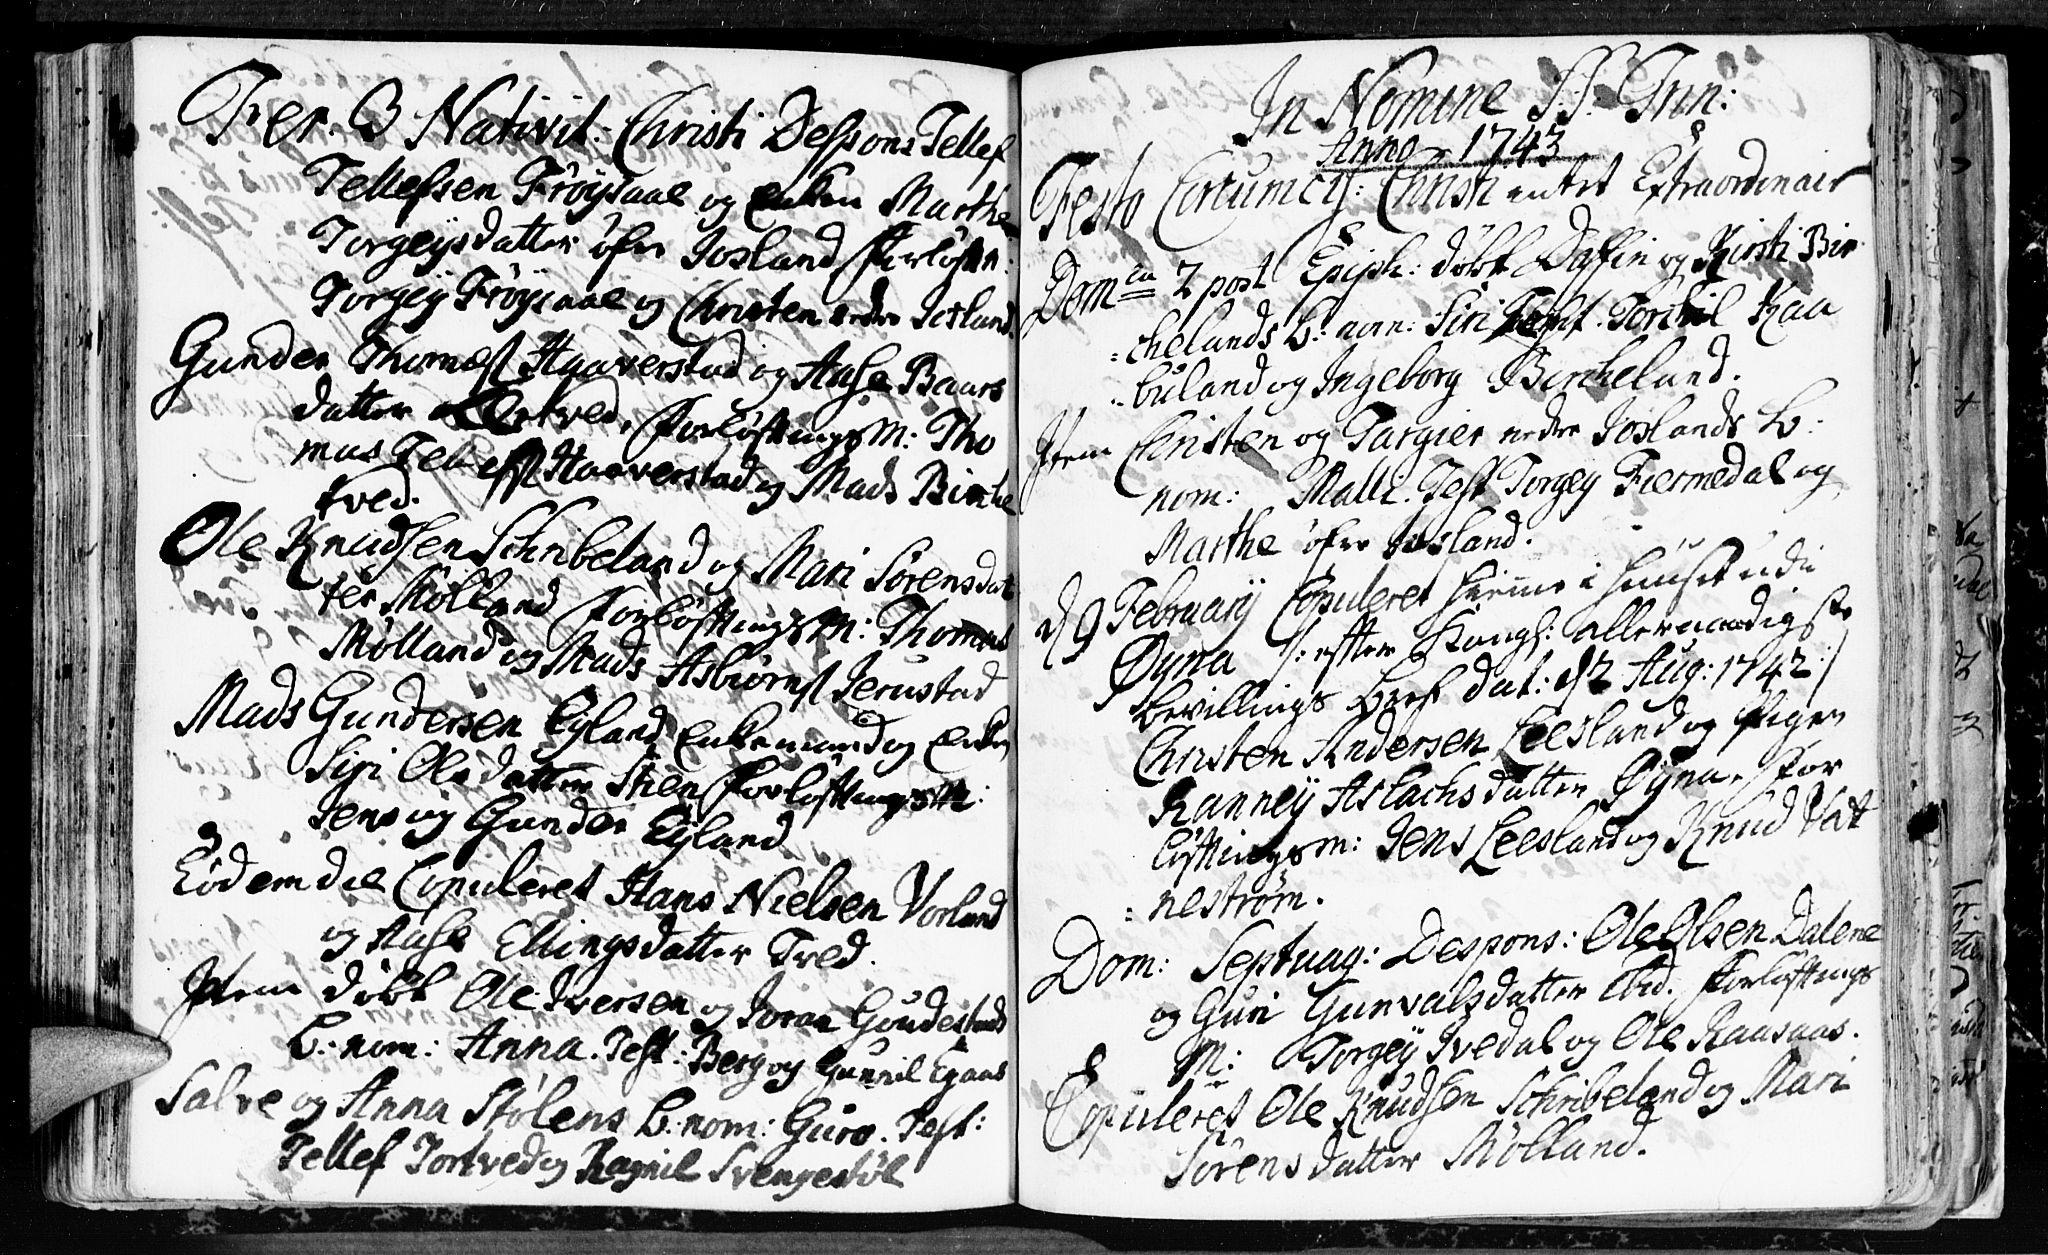 Fer. 3 Nativit: Christi Despons Tellef
Tellefsen Frøysaae og Enken Marthe
Torgeysdatter öfre Iosland Forløftn:
Torgey Frøysaae og Christen nedre Iosland.
Gunder Thomess Haaverstad og Aase Baars
datter Tved, Forløftnings M: Tho
mas Haaverstad og Mads Birke
tved.
Ole Knudsen Schribeland og Mari Sörensdat
ter Mölland Forløftnings M: Thomas
Mölland og Mads Asbiörns Ierustad
Mads Gundersen Eyland Enkemand og Enken
Siri Olsdatter Steen Forløftnings M:
Jens og Gunder Eyland
Eodem die Copuleret Hans Nielsen Vorland
og Aase Ellingsdatter Tved.
Item döbt Ole Iversen og Joran Goudestads
B: nom: Anna. Test: Berg og Gunnil Egaas
Salve og Anna Stölens B: nom: Guro. Test:
Tellef Tortved og Ragnil Svengestöl
In Nomine SS. Trin:
Anno 1743
Festo Circumcis: Christi intet Extraordinair
Domca 2 post Epiph: döbt Daffin og Kirsti Bir
=chelands b: nom: Siri Test. Torkil Kaa
=buland og Ingeborg Bircheland.
Item Christen og Targier nedre Ioslands b:
nom: Malli. Test Torgey Fiermedal og
Marthe öfre Iosland.
d 9 February Copuleret hiemme i Huuset udi
Øyna /: efter Kongl: allernaadigste
bevillings Bref dat: d 2 Aug: 1742 :/
Christen Andersen Leesland og Pigen
Ranney Aslachsdatter Øyna, For
löftnings m: Jens Leesland og Knud Vat
=neström.
Dom: Septuag: Despons: Ole Olsen Dalene
og Guri Gunvalsdatter ibid. Forløftnings
M: Torgey Ivedal og Ole Raasaas.
Copuleret Ole Knudsen Schribeland og Mari
Sörensdatter Mölland.